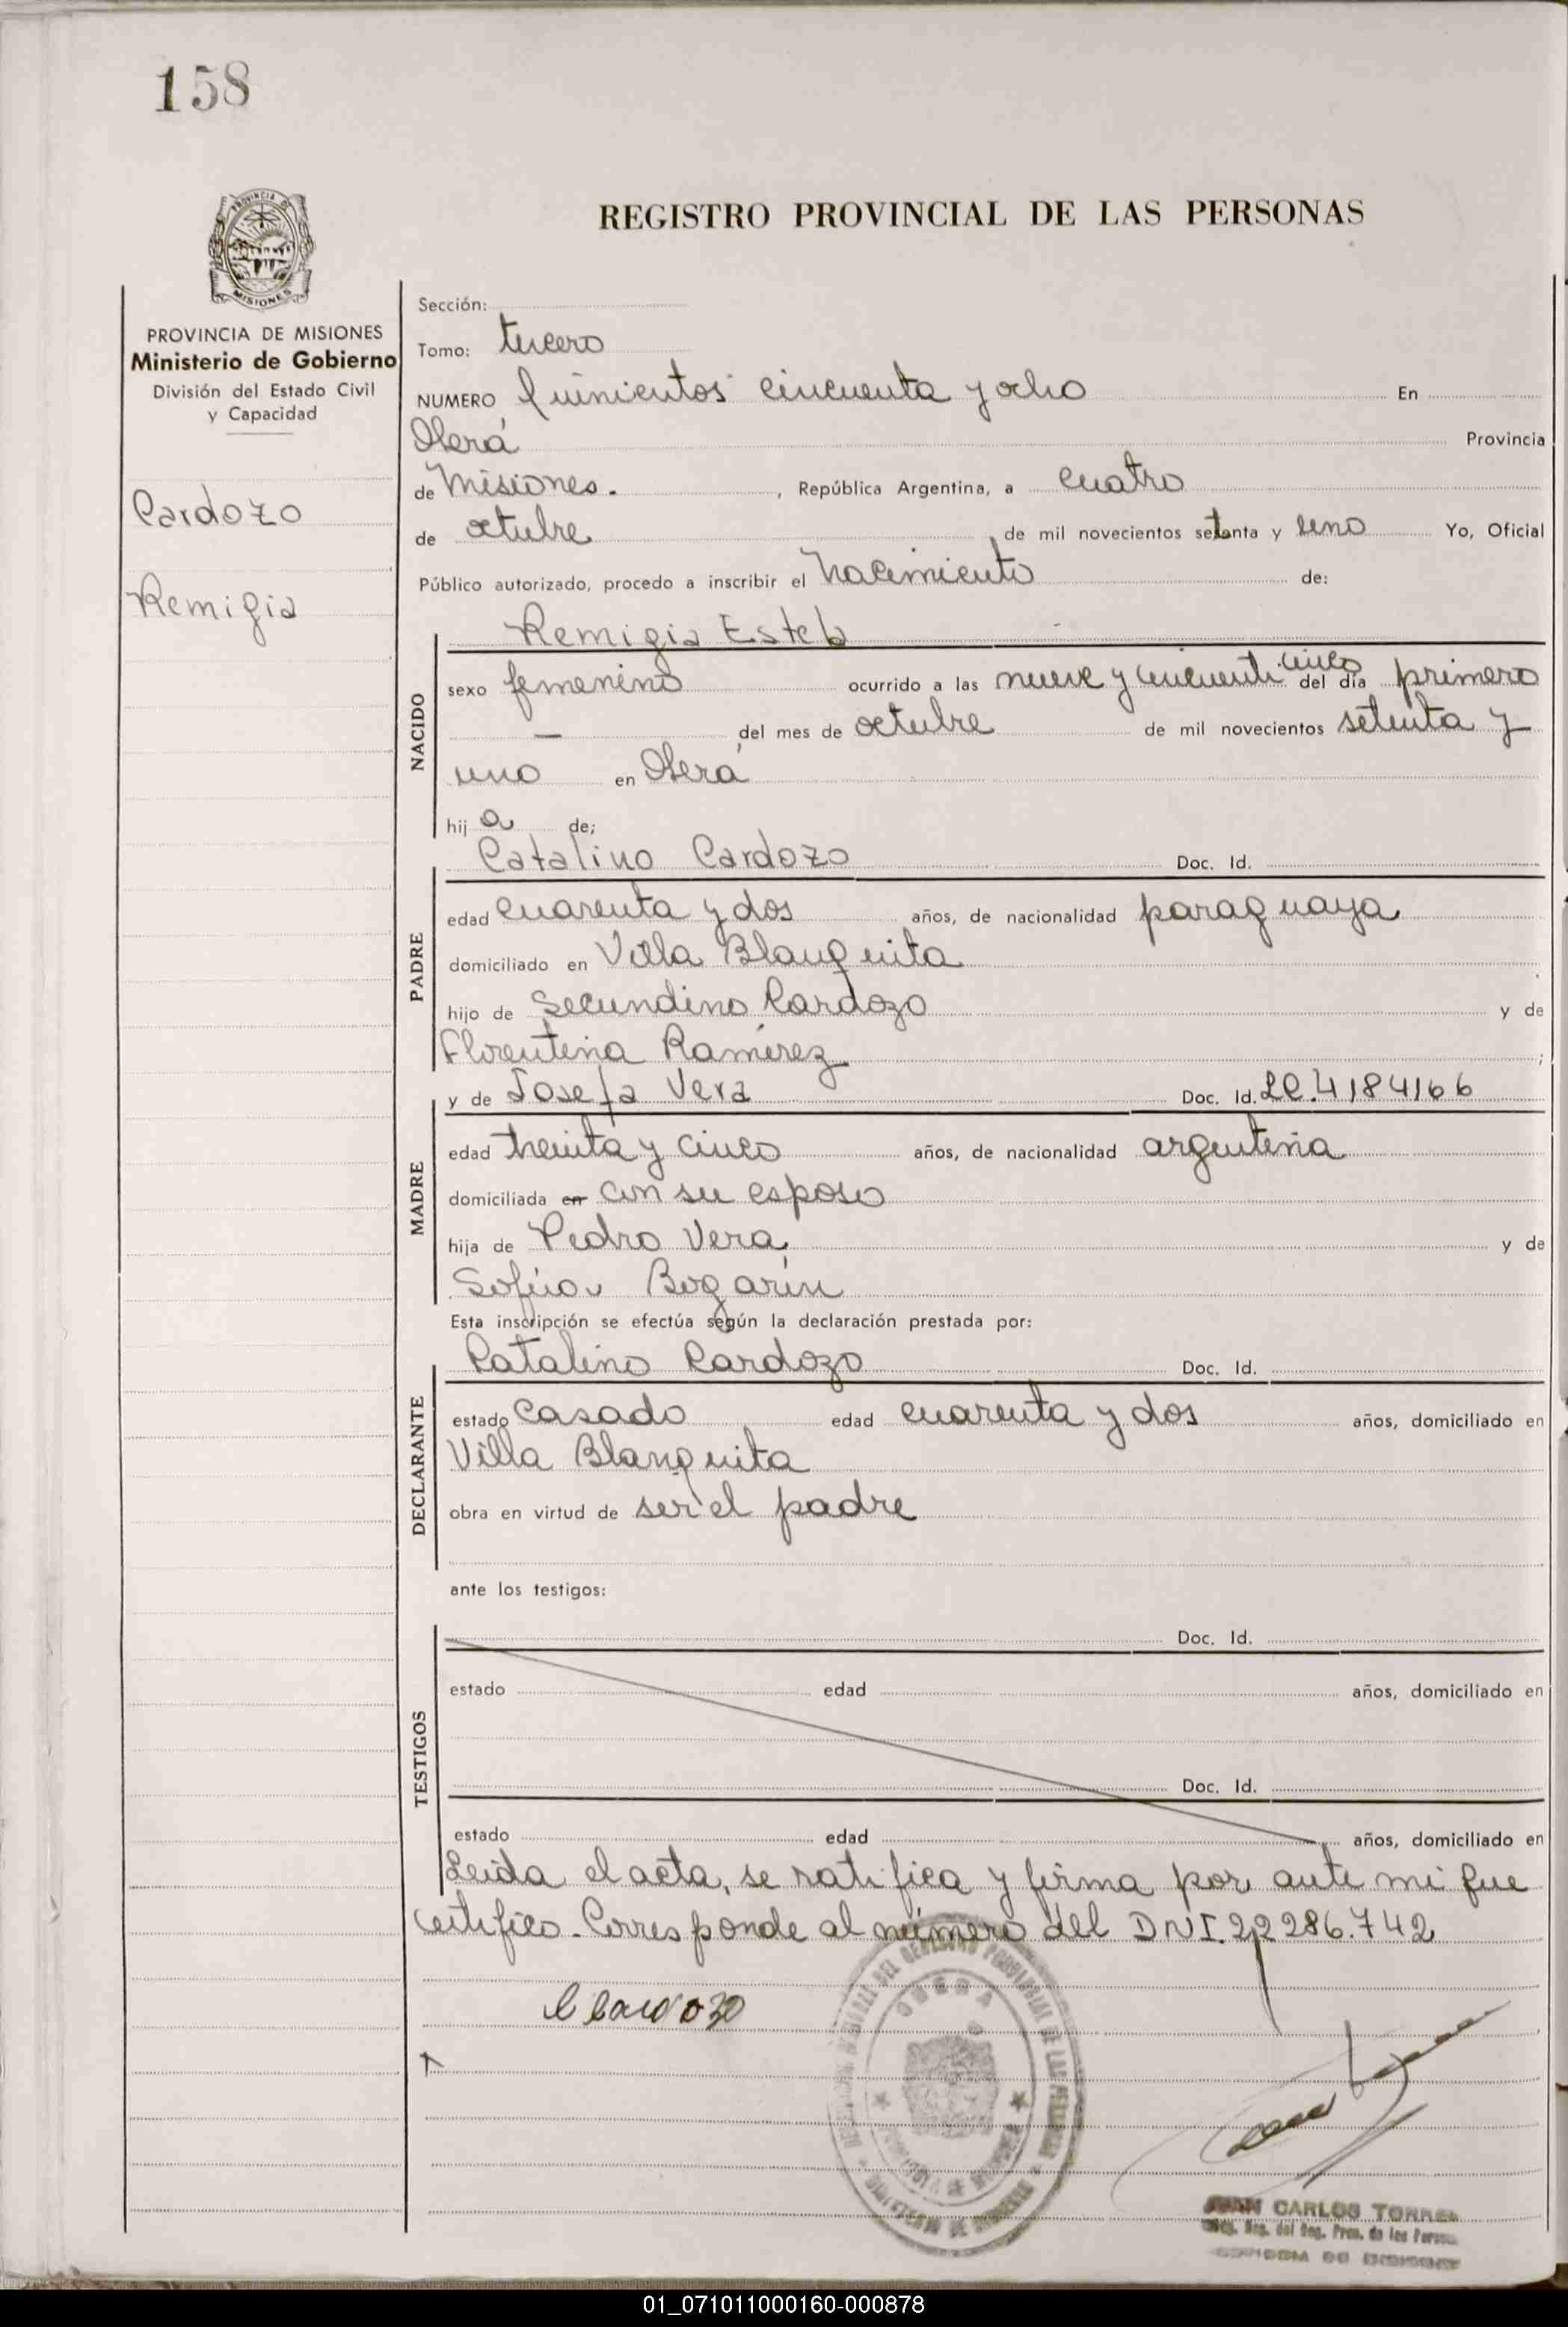 158
REGISTRO PROVINCIAL DE LAS PERSONAS
PROVINCIA DE
MISIONES
PROVINCIA DE MISIONES
Ministerio de Gobierno
División del Estado Civil
y Capacidad
Cardozo
Remigia
Sección:
Tomo: tercero
NUMERO Quinientos cincuenta y ocho En
Oberá Provincia
de Misiones. , República Argentina, a cuatro
de octubre de mil novecientos setenta y uno Yo, Oficial
Público autorizado, procedo a inscribir el Nacimiento de:
NACIDO
Remigia Estela
sexo femenino ocurrido a las nueve y cincuenti cinco del día primero
— del mes de octubre de mil novecientos setenta y
uno en Oberá
hij a de;
PADRE
Catalino Cardozo Doc. Id.
edad cuarenta y dos años, de nacionalidad paraguaya
domiciliado en Villa Blanquita
hijo de Secundino Cardozo y de
Florentina Ramírez ;
MADRE
y de Josefa Vera Doc. Id. LC.4184166
edad treinta y cinco años, de nacionalidad argentina
domiciliada en con su esposo
hija de Pedro Vera y de
Sofía Bogarín
Esta inscripción se efectúa según la declaración prestada por:
DECLARANTE
Catalino Cardozo Doc. Id.
estado casado edad cuarenta y dos años, domiciliado en
Villa Blanquita
obra en virtud de ser el padre
ante los testigos:
TESTIGOS
Doc. Id.
estado edad años, domiciliado en
Doc. Id.
estado edad años, domiciliado en
Leida el acta, se ratifica y firma por ante mi que
certifico. Corresponde al número del DNI.22286.742
C Cardozo
JUAN CARLOS TORRES
01_071011000160-000878